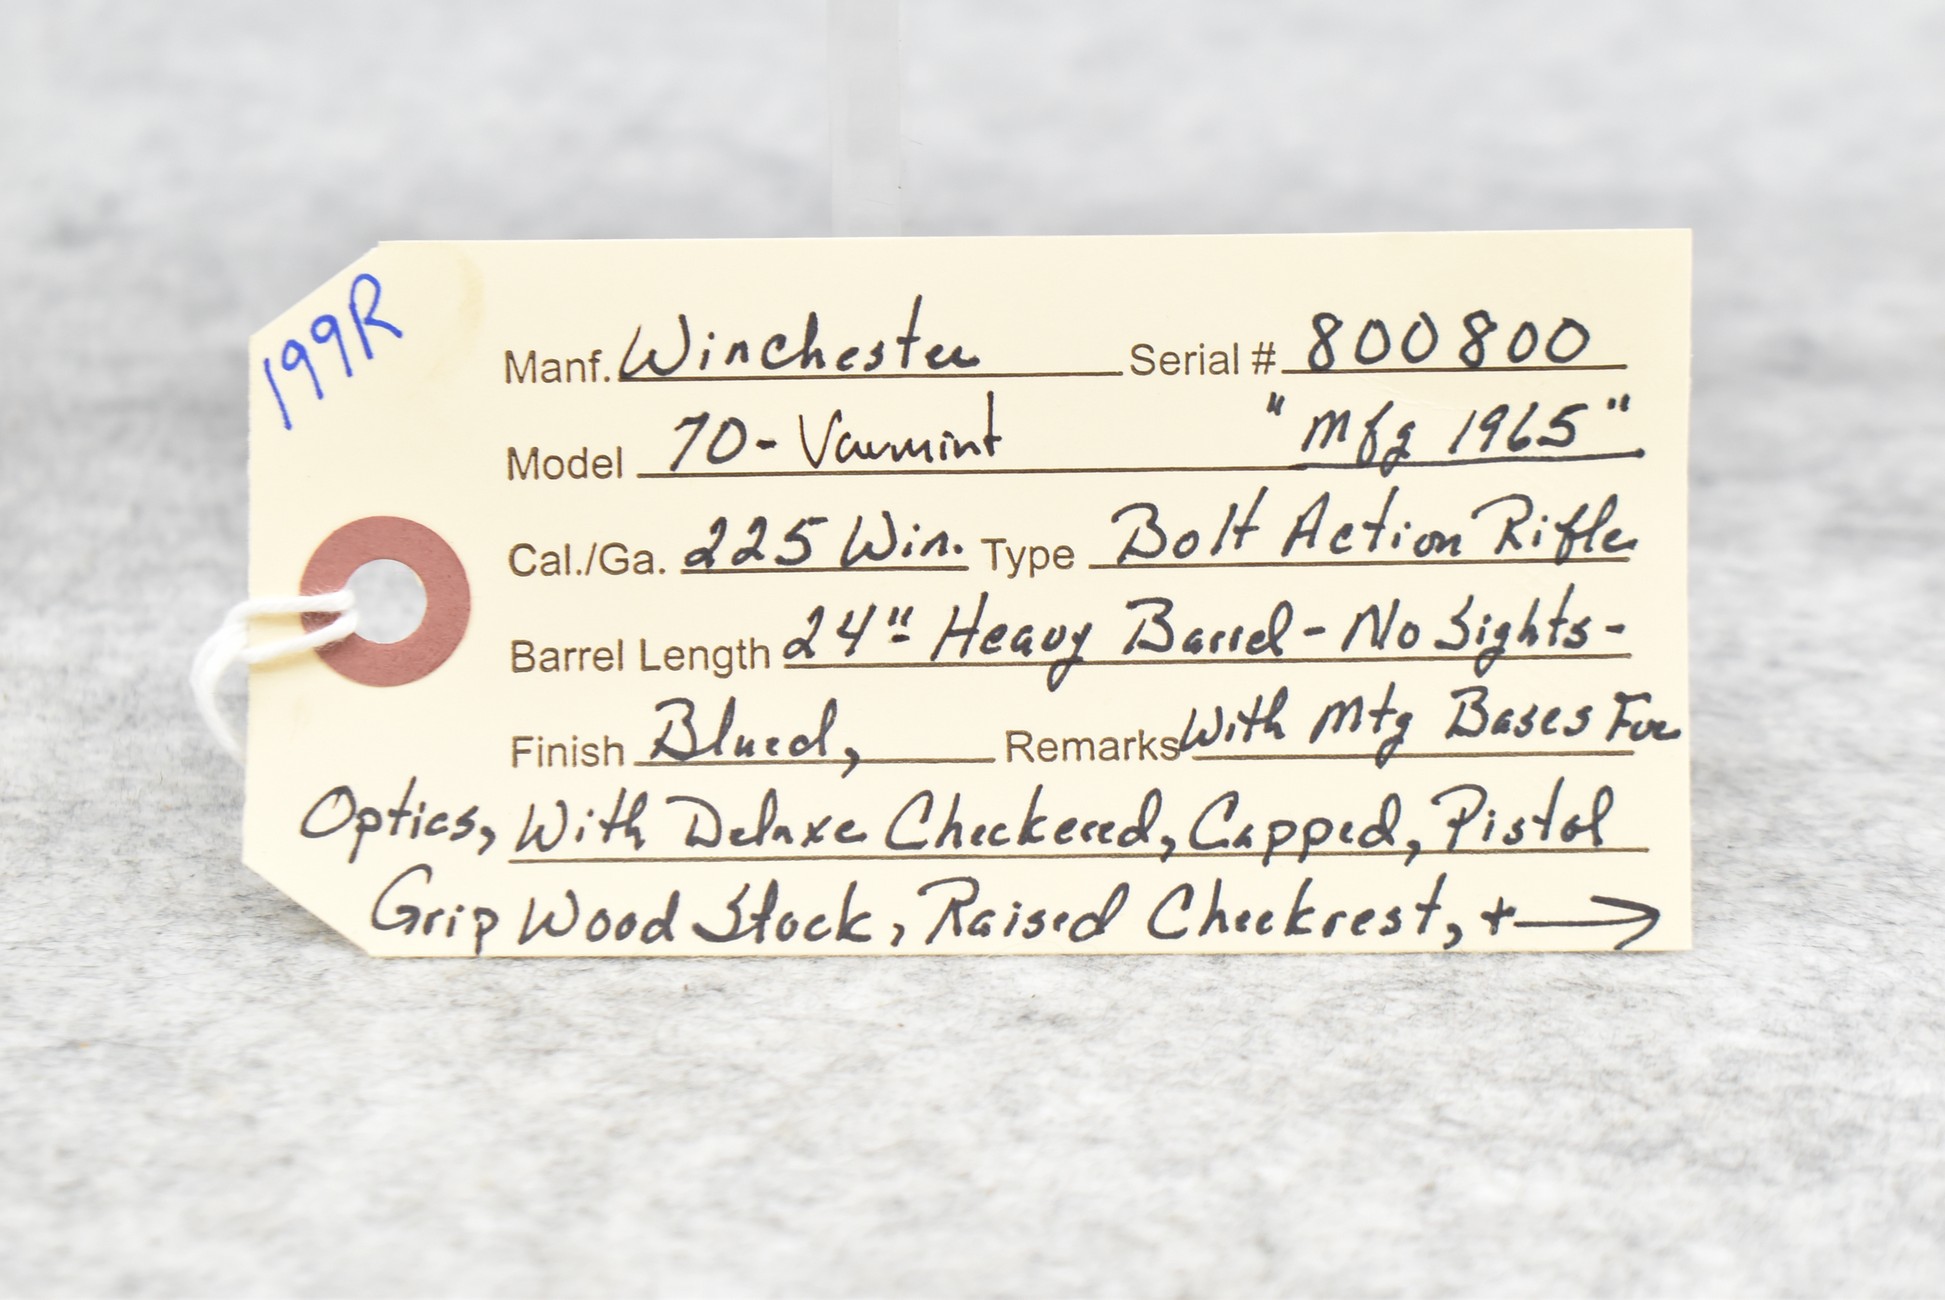 199R
Manf. Winchester Serial # 800800
Model 70- Varmint "Mfg 1965"
Cal./Ga. 225 Win. Type Bolt Action Rifle
Barrel Length 24"- Heavy Barrel - No Sights -
Finish Blued, Remarks With Mtg Bases For
Optics, With Deluxe Checkered, Capped, Pistol
Grip Wood Stock, Raised Cheekrest, + →